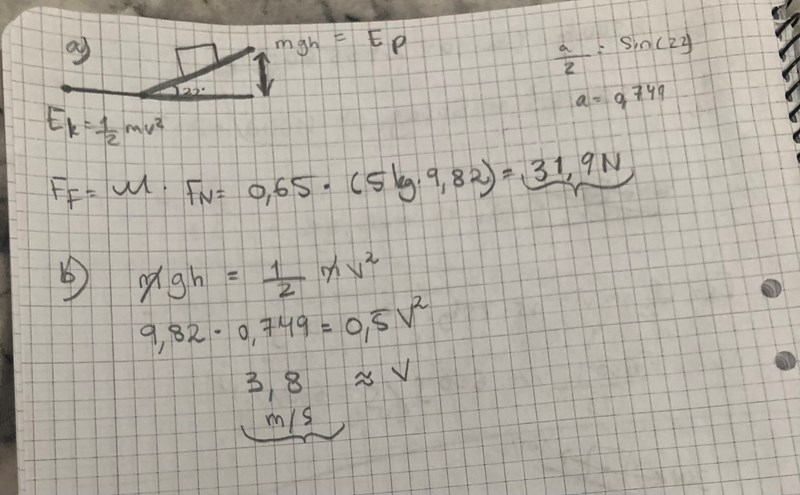 a) mgh = Ep
a/2 = Sin(22)
a = 0,749
22°
Ek = 1/2 mv²
FF = μ · FN = 0,65 · (5kg · 9,82) = 31,9N
b) mgh = 1/2 mv²
9,82 · 0,749 = 0,5 V²
3,8 ≈ V
m/s